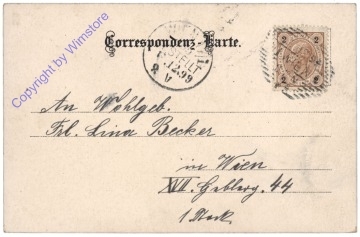 Copyright by Wimstore
Correspondenz-Karte.
BESTELLT
12.99
8. V
2 2
An Wohlgeb.
Frl. Lina Becker
in Wien
XVII. Gablerg. 44
1 Stock